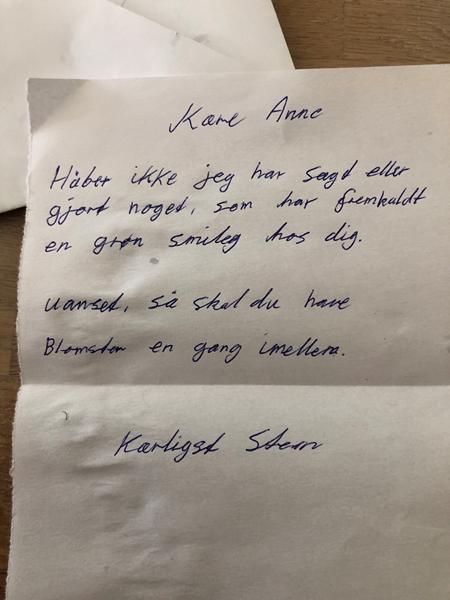 Kære Anne
Håber ikke jeg har sagt eller
gjort noget, som har fremkaldt
en grøn smiley hos dig.
uanset, så skal du have
Blomster en gang imellem.
Kærligst Steen